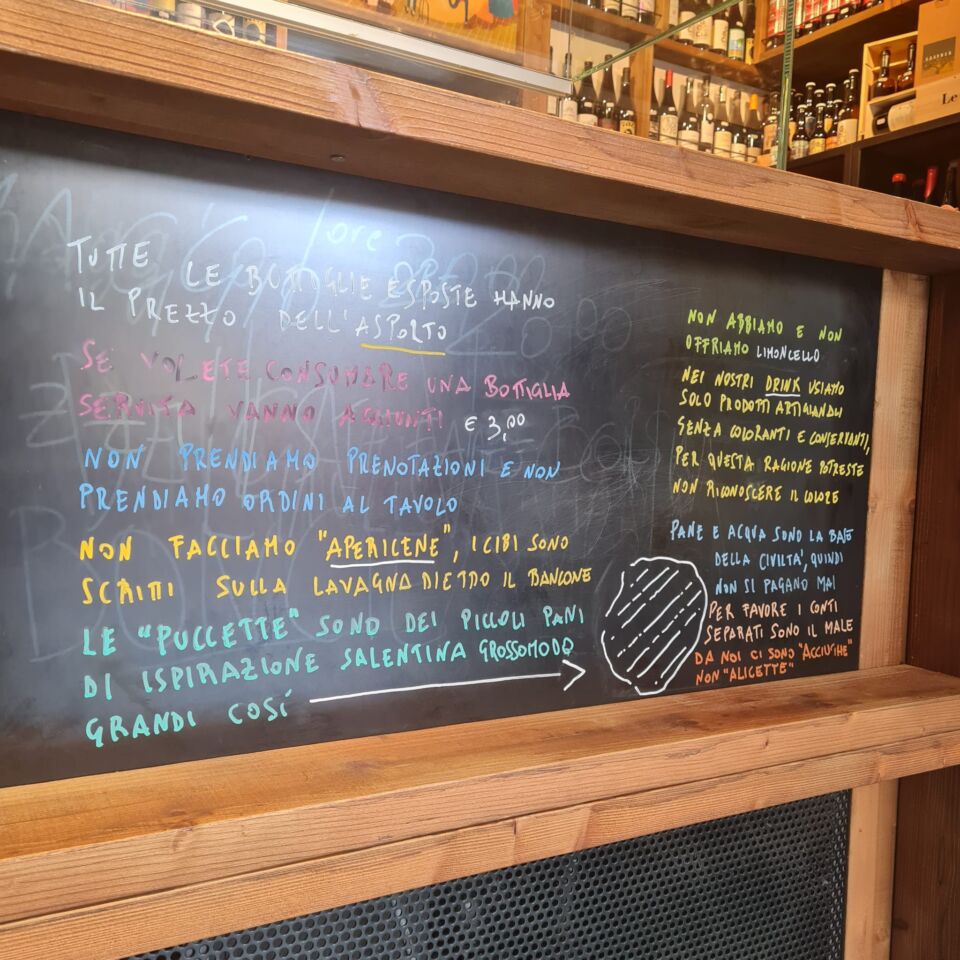 TUTTE LE BOTTIGLIE ESPOSTE HANNO
IL PREZZO DELL'ASPORTO
SE VOLETE CONSUMARE UNA BOTTIGLIA
SERVITA VANNO AGGIUNTI € 3,00
NON PRENDIAMO PRENOTAZIONI E NON
PRENDIAMO ORDINI AL TAVOLO
NON FACCIAMO "APERICENE", I CIBI SONO
SCRITTI SULLA LAVAGNA DIETRO IL BANCONE
LE "PUCCETTE" SONO DEI PICCOLI PANI
DI ISPIRAZIONE SALENTINA GROSSOMODO
GRANDI COSÍ
NON ABBIAMO E NON
OFFRIAMO LIMONCELLO
NEI NOSTRI DRINK USIAMO
SOLO PRODOTTI ARTIGIANALI
SENZA COLORANTI E CONSERVANTI,
PER QUESTA RAGIONE POTRESTE
NON RICONOSCERE IL COLORE
PANE E ACQUA SONO LA BASE
DELLA CIVILTA', QUINDI
NON SI PAGANO MAI
PER FAVORE I CONTI
SEPARATI SONO IL MALE
DA NOI CI SONO "ACCIUGHE"
NON "ALICETTE"